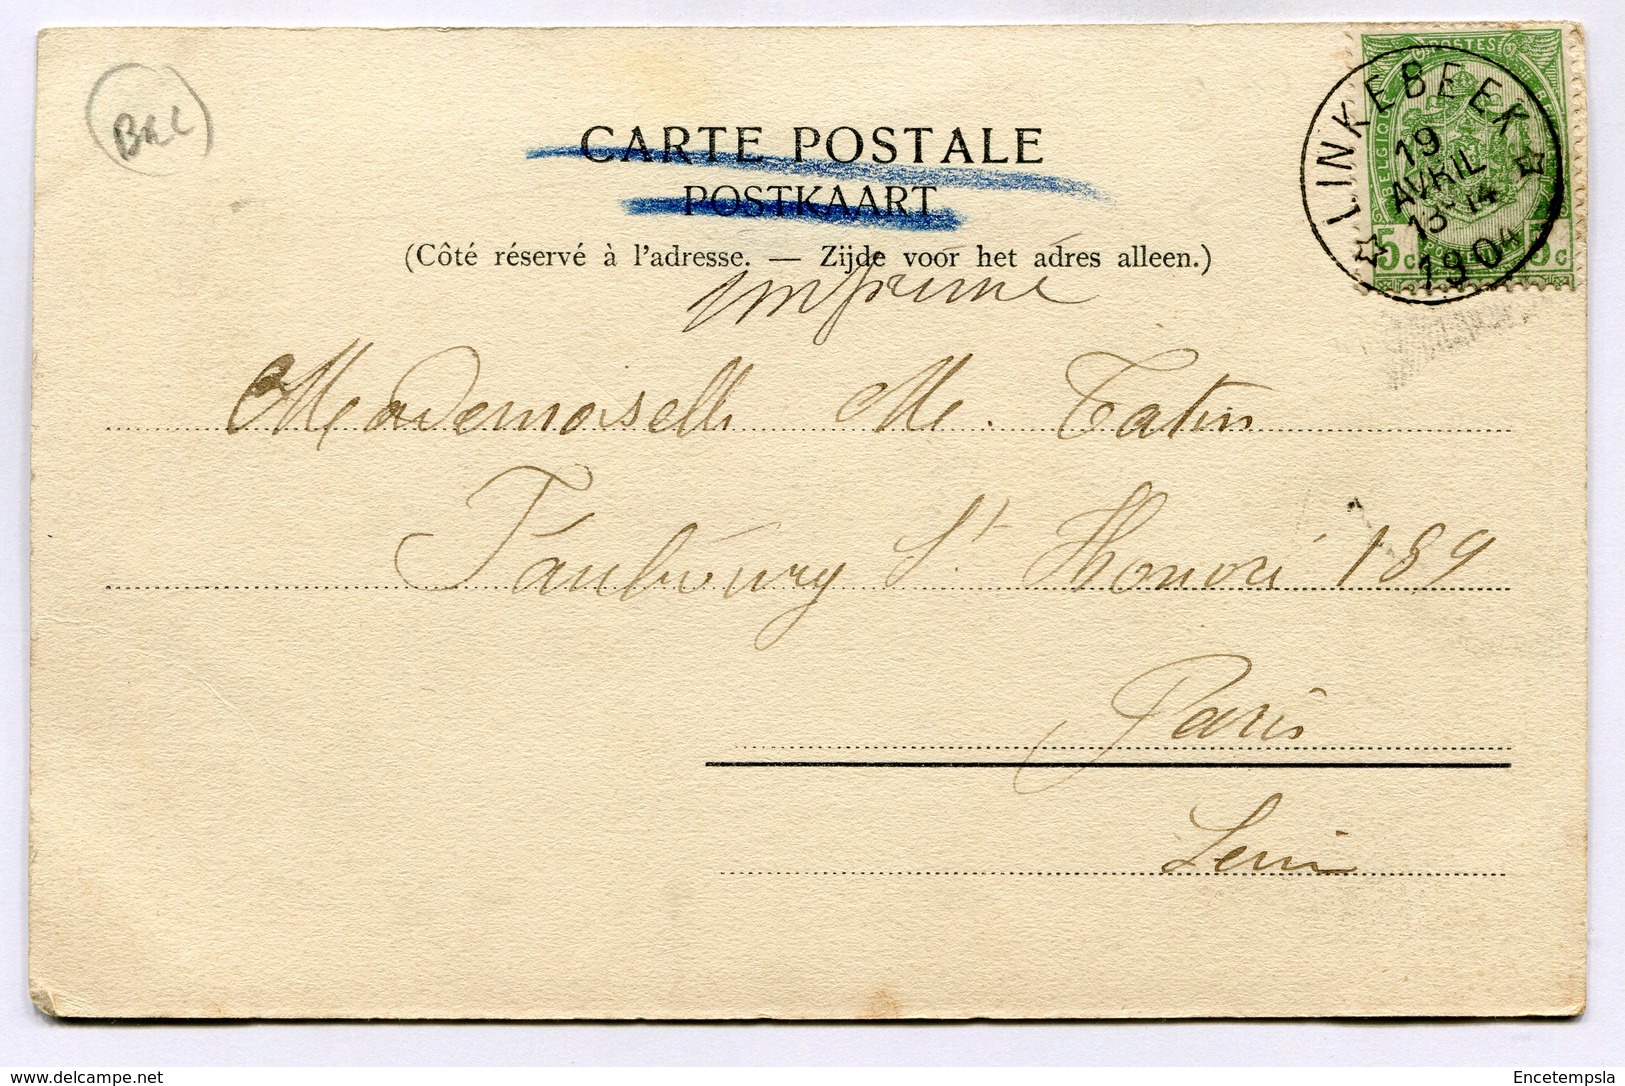 BRL
POSTES
BELGIQUE
5c 5c
LINKEBEEK
19
AVRIL
13-14
1904
CARTE POSTALE
POSTKAART
(Côté réservé à l'adresse. — Zijde voor het adres alleen.)
imprimé
Mademoiselle M. Tatin
Faubourg St Honoré 189
Paris
delcampe.net
Encetempsla